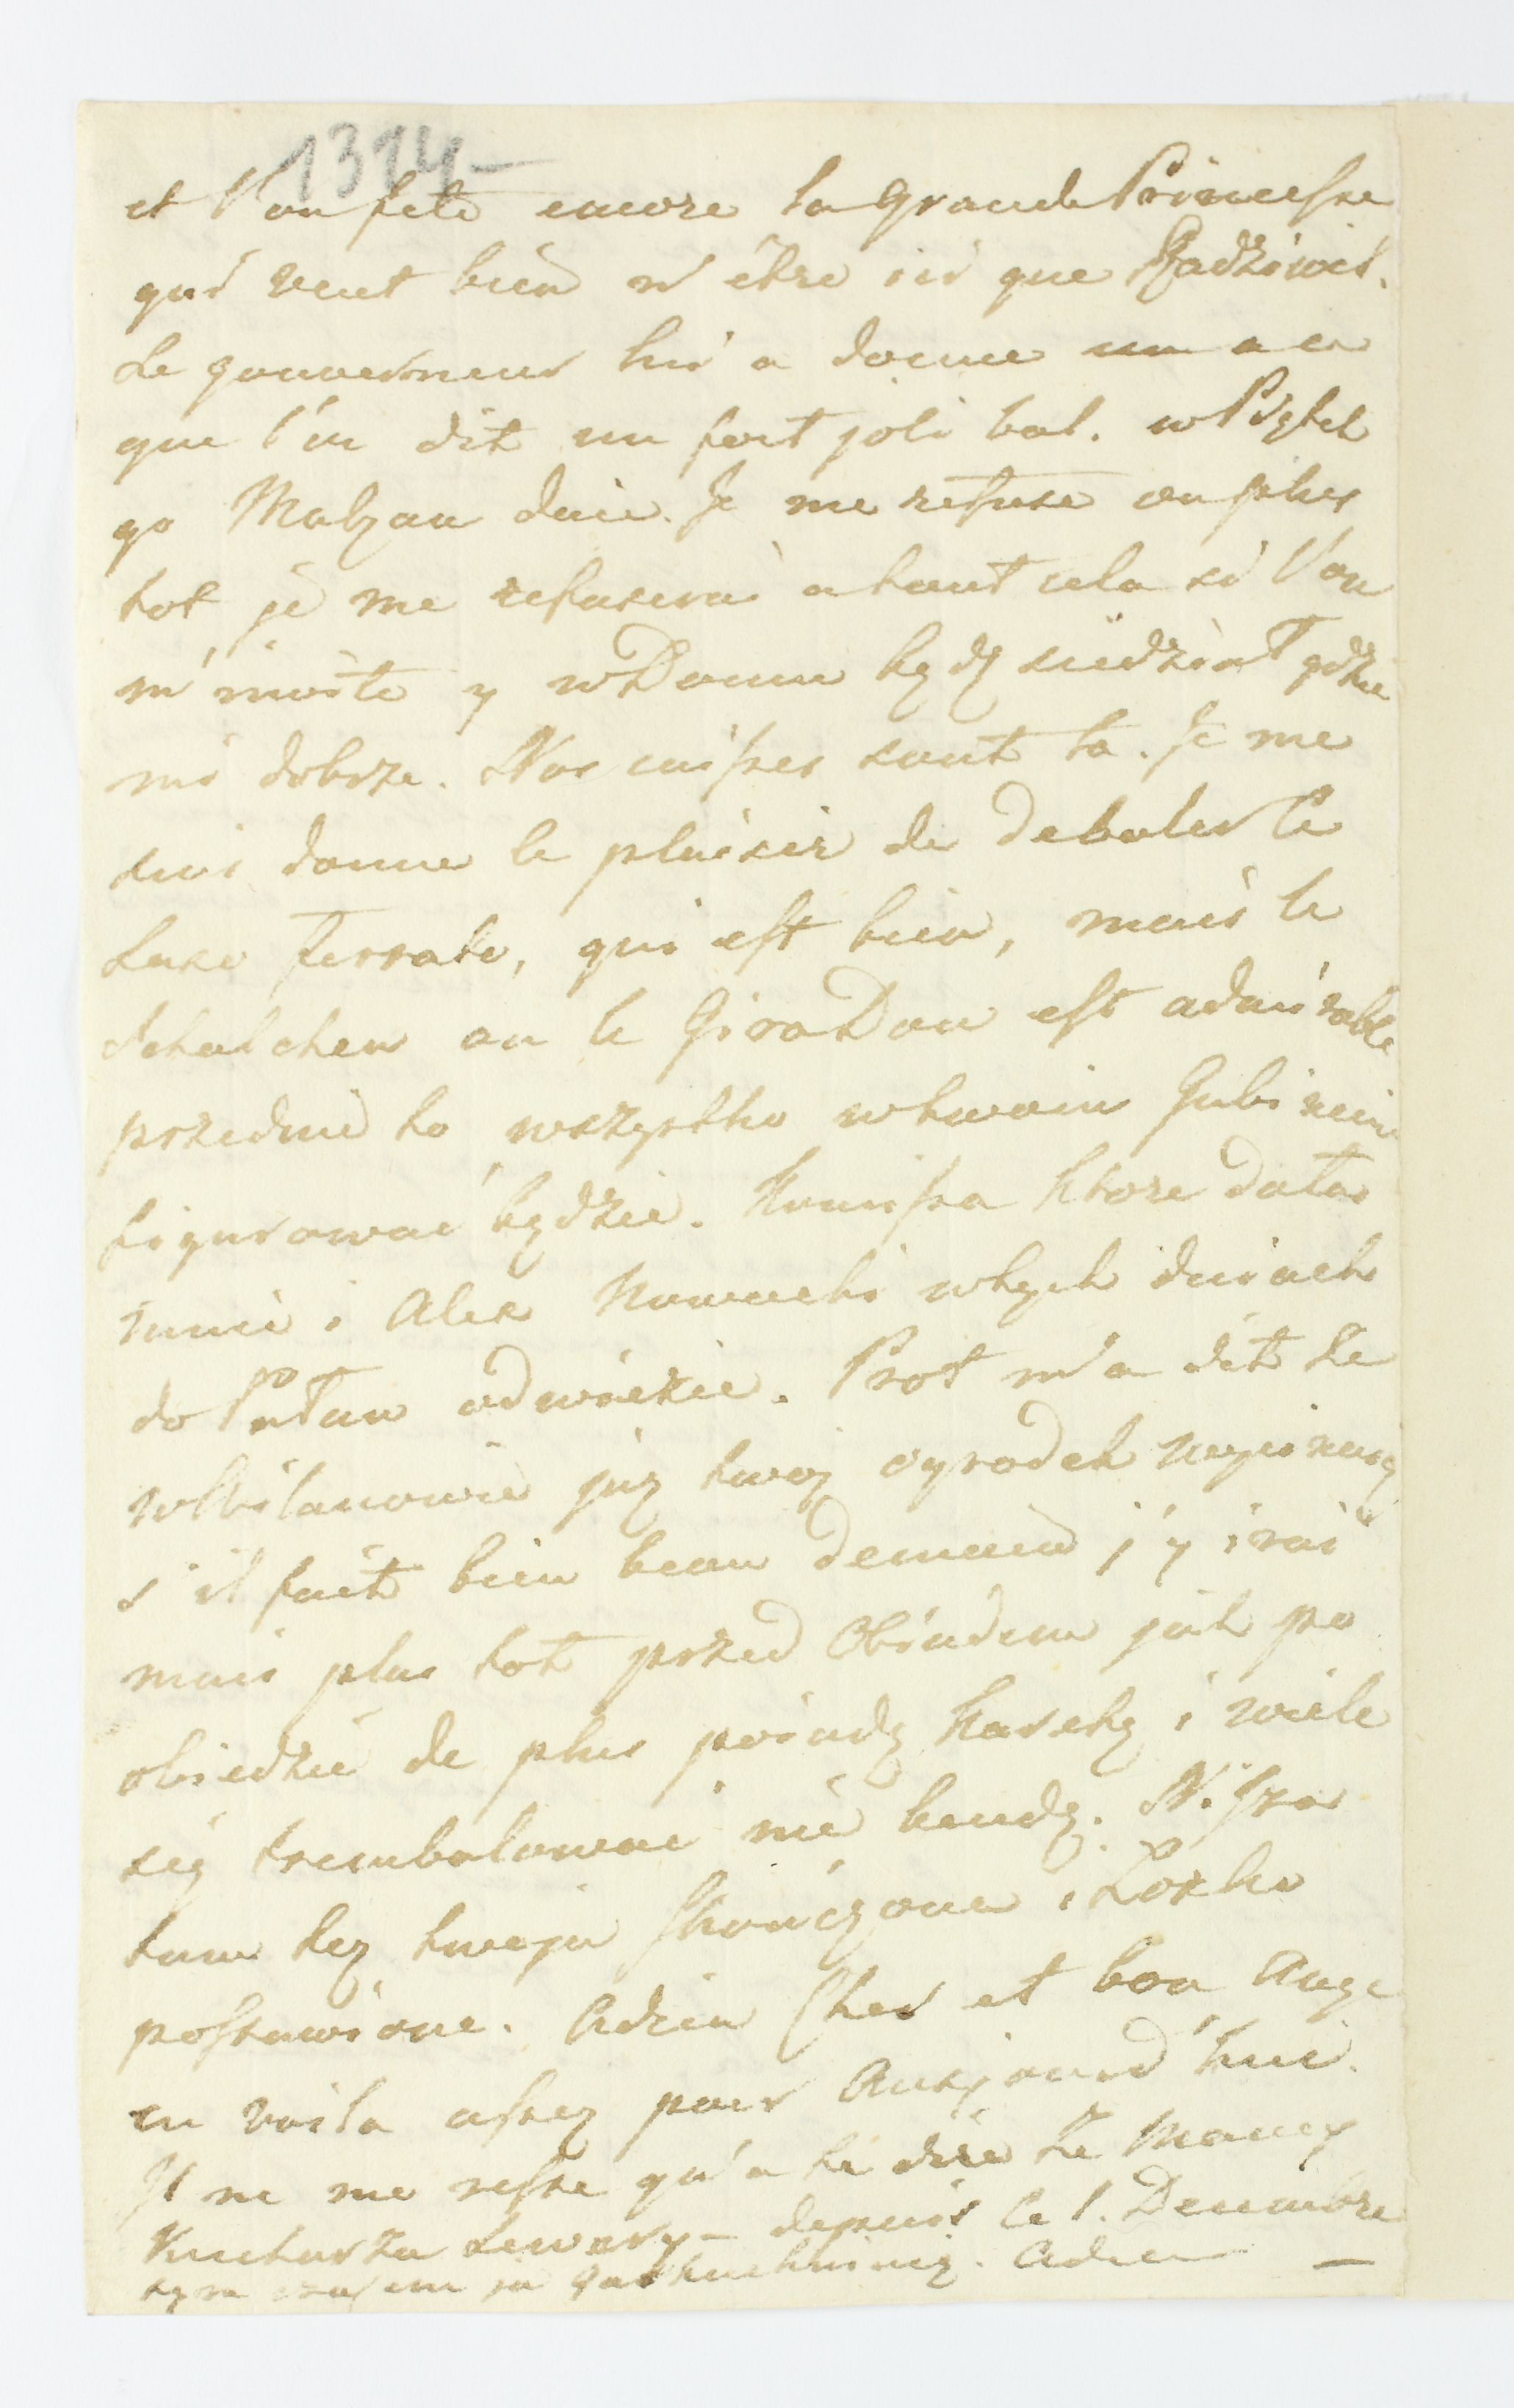 1314-
et l'on fete encore la Grande Princesse
qui veut bien n'être ici que Radziwil.
Le gouverneur lui a donne un a ce
que l'on dit un fort joli bal. w Piątek
go Malzan daie. Je me refuse ou plus
tot je me refuserai a tout cela si l'on
m'invite y w Domu będę siedział gdzie
mi dobrze. Nos caisses sont la. Je me
suis donne le plaisir de debaler le
Sasso ferrato, qui est bien, mais le
Schalcken ou le GiraDou est admirable
przednie to wszystko w twoim Gabinecie
figurować będzie. Komissa ktore dałas
mnie i Alex Nowacki w tych dniach
do Puław odwiezie. Prot m'a dit że
w Wilanowie już twoj ogrodek
s'il fait bien beau demain j'y irai
mais plus tot przed Obiadem jak po
obiedzie de plus poiadę Karetą i wiele
się trembalować nie bendę. Nissza
tam tez twoja skończona i Łożko
postawione. Adieu Cher et bon Ange
en voila assez pour Aujourd'hui.
Il ne me reste qu'a te dire że Mamy
Kucharza depuis le 1. Decembre
Adieu —